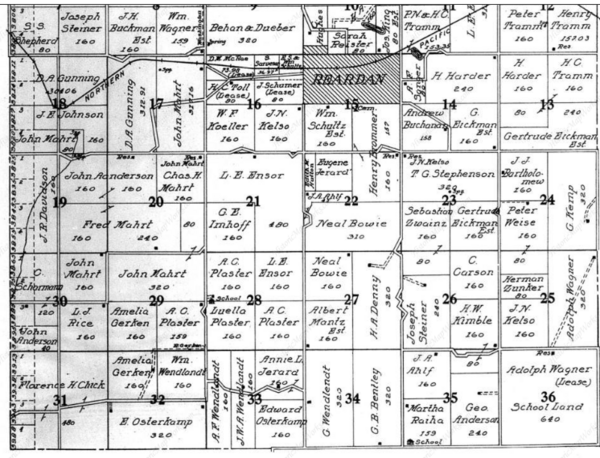 S. S.
Shepherd
80
Joseph
Steiner
160
J.H.
Buckman
Est
160
Wm.
Wagner
159
Behan & Dueber
320
Sarah
Reister
80
P.N. & H.C.
Tramm
Peter
Tramm
160
Henry
Tramm
157.03
PACIFIC
NORTHERN
REARDAN
D.A. Gunning
304.06
18
J.E. Johnson
160
John Mahrt
160
D.A. Gunning
312.91
17
John Mahrt
317.76
H.C. Toll
(Lease)
80
J. Schumer
(Lease)
80
16
W.F.
Koeller
160
J.N.
Kelso
160
15
Wm.
Schultz
Est
160
157
H. Harder
240
14
Andrew
Buchanan
158
G.
Eickman
Est
160
H
Harder
160
H.C.
Tramm
160
13
80
240
Gertrude Eickman
Est
J.P. Davidson
19
John Aanderson
160
160
Chas. H.
Mahrt
160
John Mahrt
160
20
Fred Mahrt
240
80
L.E. Ensor
21
G.E.
Imhoff
160
480
Eugene
Jerard
160
J.A. Ahlf
22
Neal Bowie
310
J.N. Kelso
T.G. Stephenson
320
23
Sebastian
Zwainz
160
Gertrude
Eickman
Est
160
J.J.
Bartholo-
mew
160
24
Peter
Weise
160
G. Kemp
320
C.
Schormann
30
120
John
Anderson
40
John
Mahrt
160
L.J.
Rice
160
John Mahrt
320
29
Amelia
Gerken
160
A.C.
Plaster
159
A.C.
Plaster
160
L.E.
Ensor
160
School
28
Luella
Plaster
160
A.C.
Plaster
160
Neal
Bowie
160
27
Albert
Mantz
Est
160
H.A. Denny
320
80
C.
Carson
160
26
Joseph
Steiner
240
H.W.
Kimble
160
80
Herman
Zunker
80
25
J.N.
Kelso
160
Adolph Wagner
320
Florence H. Chick
31
480
Amelia
Gerken
160
Wm.
Wendlandt
160
32
E. Osterkamp
320
A.F. Wendlandt
160
J.W.A. Wendlandt
160
33
Annie L.
Jerard
160
Edward
Osterkamp
160
34
G. Wendlandt
320
G.B. Bentley
320
J.A.
Ahlf
160
80
35
Martha
Raiha
159
School
Geo.
Anderson
240
Adolph Wagner
(Lease)
36
School Land
640